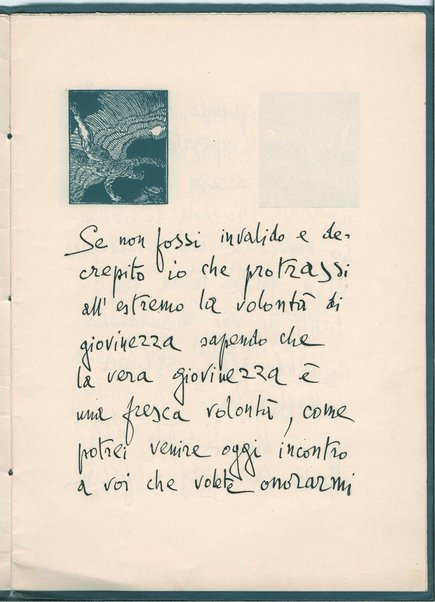 Se non fossi invalido e de-
crepito io che protrassi
all'estremo la volontà di
giovinezza sapendo che
la vera giovinezza è
una fresca volontà, come
potrei venire oggi incontro
a voi che volete onorarmi